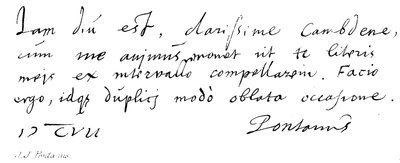 Iam diu est, clarissime Cambdene,
cum me animus monet ut te literis
meis ex intervallo compellarem. Facio
ergo, idq; duplici modò oblata occasione.
Pontanus
J. J. Pontanus.